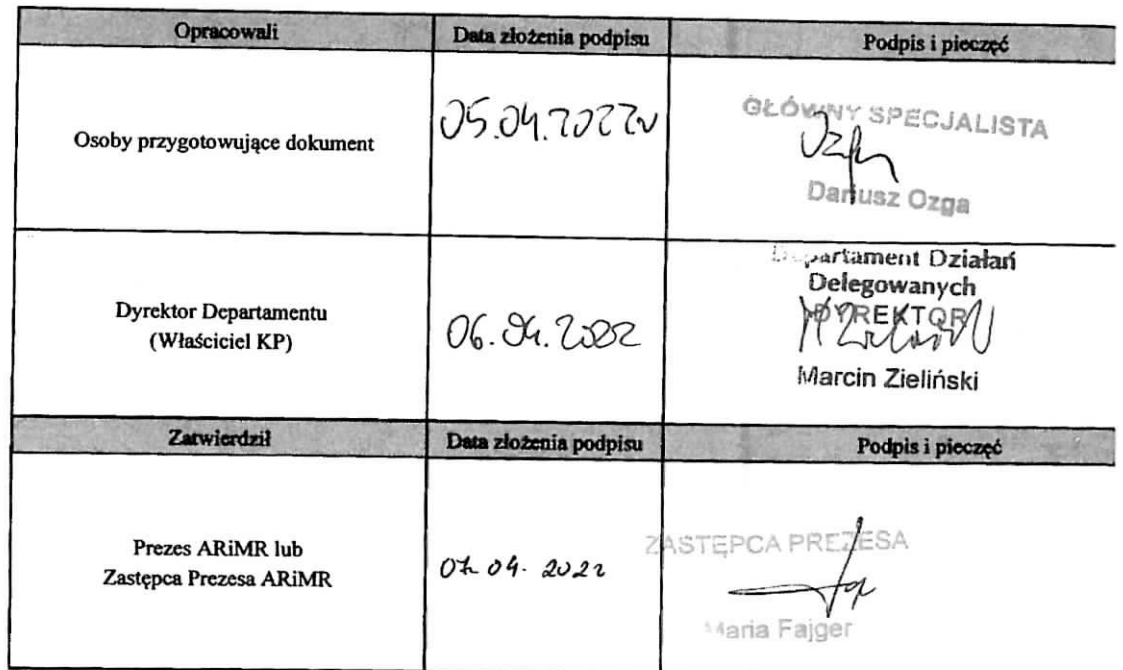 Opracowali Data złożenia podpisu Podpis i pieczęć
Osoby przygotowujące dokument
05.04.2022r
GŁÓWNY SPECJALISTA
Dariusz Ozga
Dyrektor Departamentu
(Właściciel KP)
06.04.2022
Departament Działań
Delegowanych
DYREKTOR
Marcin Zieliński
Zatwierdził Data złożenia podpisu Podpis i pieczęć
Prezes ARiMR lub
Zastępca Prezesa ARiMR
07.04.2022
ZASTĘPCA PREZESA
Maria Fajger